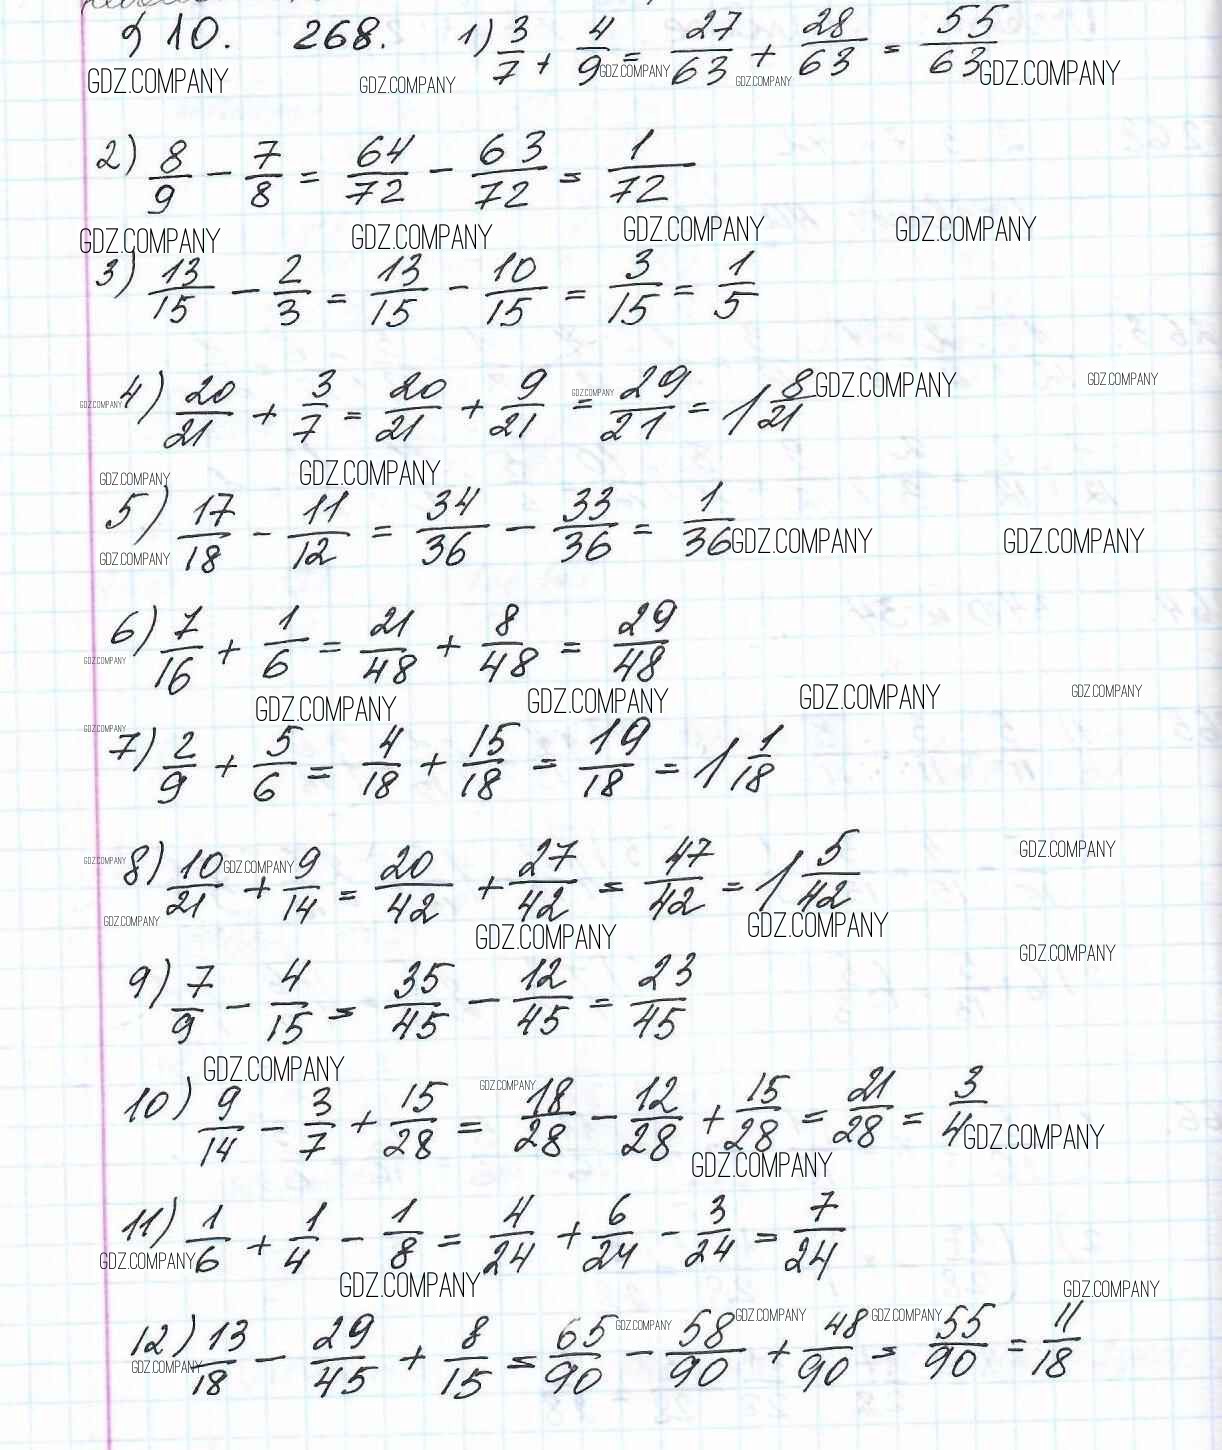 § 10. 268. 1) 3/7 + 4/9 = 27/63 + 28/63 = 55/63
GDZ.COMPANY GDZ.COMPANY GDZ.COMPANY GDZ.COMPANY GDZ.COMPANY
2) 8/9 - 7/8 = 64/72 - 63/72 = 1/72
GDZ.COMPANY GDZ.COMPANY GDZ.COMPANY GDZ.COMPANY
3) 13/15 - 2/3 = 13/15 - 10/15 = 3/15 = 1/5
GDZ.COMPANY 4) 20/21 + 3/7 = 20/21 + 9/21 = 29/21 = 1 8/21 GDZ.COMPANY GDZ.COMPANY GDZ.COMPANY
GDZ.COMPANY GDZ.COMPANY
5) 17/18 - 11/12 = 34/36 - 33/36 = 1/36 GDZ.COMPANY GDZ.COMPANY
GDZ.COMPANY
6) 7/16 + 1/6 = 21/48 + 8/48 = 29/48
GDZ.COMPANY
GDZ.COMPANY GDZ.COMPANY GDZ.COMPANY GDZ.COMPANY
GDZ.COMPANY
7) 2/9 + 5/6 = 4/18 + 15/18 = 19/18 = 1 1/18
GDZ.COMPANY 8) 10/21 + 9/14 = 20/42 + 27/42 = 47/42 = 1 5/42 GDZ.COMPANY GDZ.COMPANY
GDZ.COMPANY GDZ.COMPANY GDZ.COMPANY GDZ.COMPANY
9) 7/9 - 4/15 = 35/45 - 12/45 = 23/45
GDZ.COMPANY GDZ.COMPANY
10) 9/14 - 3/7 + 15/28 = 18/28 - 12/28 + 15/28 = 21/28 = 3/4 GDZ.COMPANY
GDZ.COMPANY
11) 1/6 + 1/4 - 1/8 = 4/24 + 6/24 - 3/24 = 7/24
GDZ.COMPANY GDZ.COMPANY GDZ.COMPANY
12) 13/18 - 29/45 + 8/15 = 65/90 - 58/90 + 48/90 = 55/90 = 11/18
GDZ.COMPANY GDZ.COMPANY GDZ.COMPANY GDZ.COMPANY